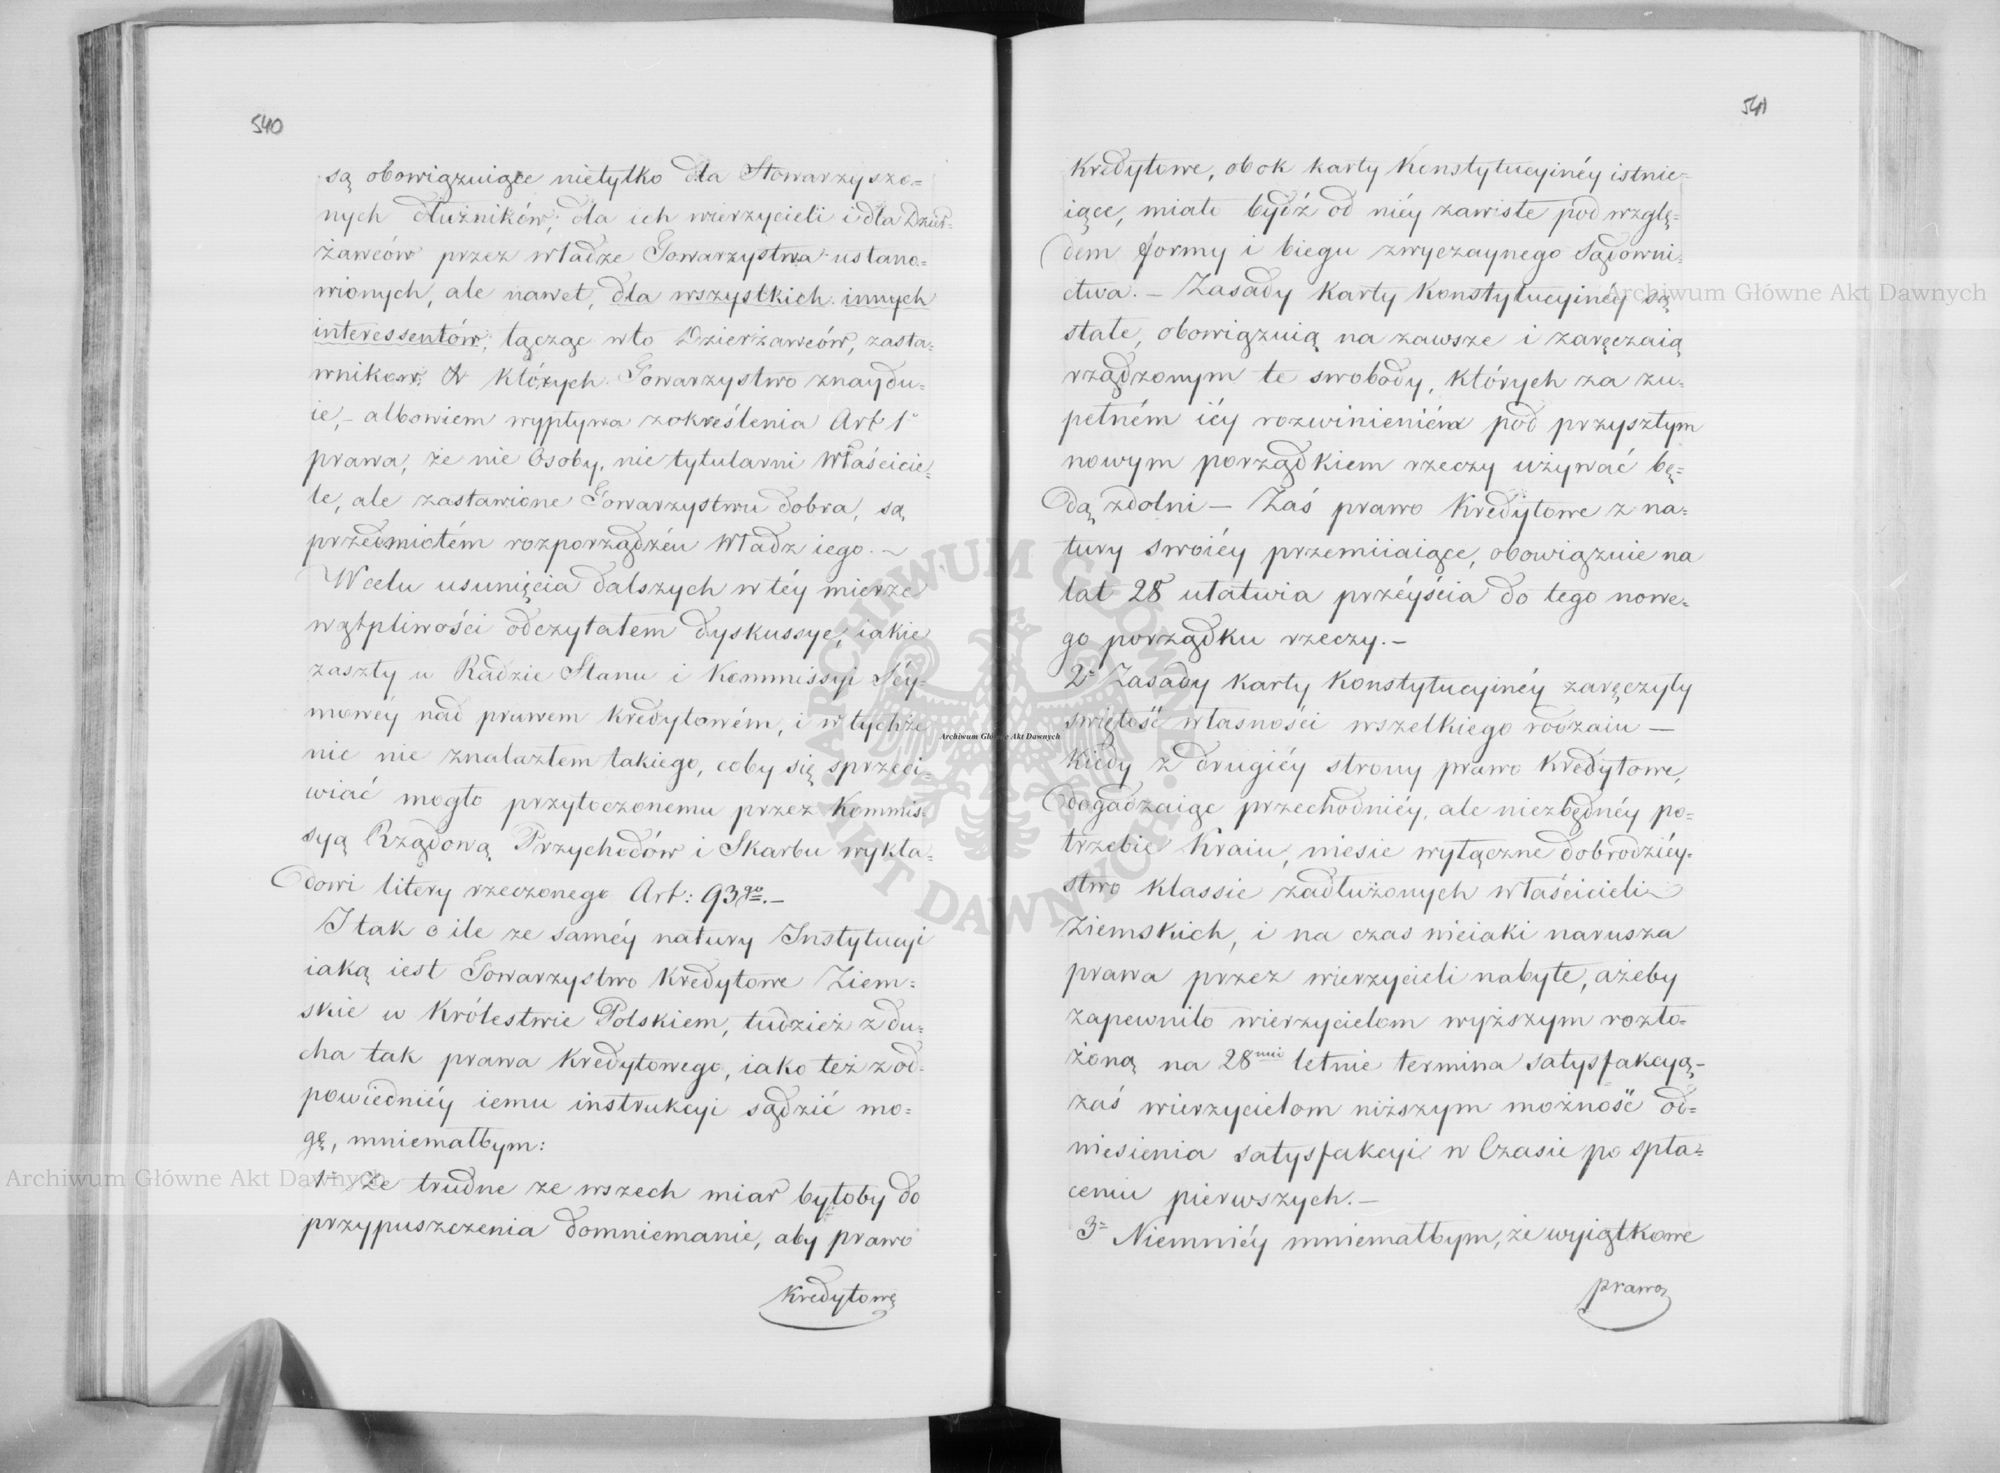 540
są obowiązuiące nietylko dla Stowarzyszo=
nych dłużników, dla ich wierzycieli i dla Dzier=
żawców przez władze Towarzystwa ustano=
wionych, ale nawet, dla wszystkich innych
interessentów, łącząc w to Dzierżawców, zasta=
wników, & których Towarzystwo znaydu=
ie, – albowiem wypływa z określenia Art 1º
prawa, że nie Osoby, nie tytularni Właścicie=
le, ale zastawione Towarzystwu dobra, są
przedmiotém rozporządzéń Władz iego. –
W celu usunięcia dalszych w téy mierze
wątpliwości odczytałem dyskussye, iakie
zaszły w Radzie Stanu i Kommissyi Séy=
mowéy nad prawem kredytowém, i w tychże
nic nie znalazłem takiego, coby się sprzeci=
wiać mogło przytoczonemu przez Kommis=
syą Rządową Przychodów i Skarbu wykła=
dowi litery rzeczonego Art: 93go. –
I tak o ile ze saméy natury Instytucyi
iaką iest Towarzystwo Kredytowe Ziem=
skie w Królestwie Polskiem, tudzież z du=
cha tak prawa Kredytowego, iako też z od=
powiedniéy iemu instrukcyi sądzić mo=
gę, mniemałbym:
1º Że trudne ze wszech miar byłoby do
przypuszczenia domniemanie, aby prawo
Kredytowe
541
Kredytowe, obok karty Konstytucyinéy istnie=
iące, miało bydź od niéy zawisłe pod wzglę=
dem formy i biegu zwyczaynego Sądowni=
ctwa. – Zasady Karty Konstytucyinéy są
stałe, obowiązuią na zawsze i zaręczaią
rządzonym te swobody, których za zu=
pełném iéy rozwinieniém pod przyszłym
nowym porządkiem rzeczy używać bę=
dą zdolni – Zaś prawo Kredytowe z na=
tury swoiéy przemiiaiące, obowiązuie na
lat 28 ułatwia przéyścia do tego nowe=
go porządku rzeczy. –
2º Zasady karty Konstytucyinéy zaręczyły
świętość własności wszelkiego rodzaiu –
Kiedy z drugiéy strony prawo Kredytowe,
dogadzaiąc przechodniéy, ale niezbędnéy po=
trzebie Kraiu, niesie wyłączne dobrodziéy=
stwo klassie zadłużonych właścicieli
Ziemskich, i na czas nieiaki narusza
prawa przez wierzycieli nabyte, ażeby
zapewniło wierzycielom wyższym rozło=
żoną na 28mio letnie termina satysfakcyą –
zaś wierzycielom niższym możność od=
niesienia satysfakcyi w Czasie po spła=
ceniu pierwszych. –
3º Niemniéy mniemałbym, że wyiątkowe
prawo
Archiwum Główne Akt Dawnych
Archiwum Główne Akt Dawnych
Archiwum Główne Akt Dawnych
ARCHIWUM GŁÓWNE AKT DAWNYCH